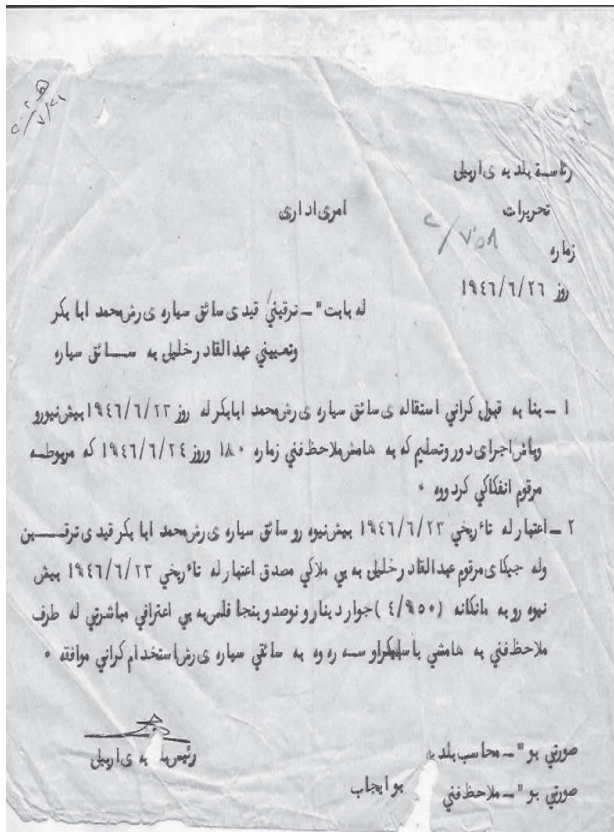 رئاسة بلدیه ی اربیلی
تحریرات امری اداری
زماره ٧٥٨
روز ١٩٤٦/٦/٢٦
له بابت"ــ ترقینی قیدی سائق سیاره ی رش محمد ابابکر
وتعیینی عبدالقادر خلیلی به ســـائق سیاره
١ ــ بنا به قبول کرانی استقاله ی سائق سیاره ی رش محمد ابابکر له روز ١٩٤٦/٦/٢٣ بیش نیورو
وباش اجرای دور وتسلیم که به هامش ملاحظ فنی زماره ١٨٠ وروز ١٩٤٦/٦/٢٤ که مربوطــه
مرقوم انفکاکی کردووه ٠
٢ ــ اعتبار له تاءریخی ١٩٤٦/٦/٢٣ بیش نیوه رو سائق سیاره ی رش محمد ابا بکر قیدی ترقـــین
وله جیکای مرقوم عبدالقادر خلیلی به بی ملاکی مصدق اعتبار له تاءریخی ١٩٤٦/٦/٢٣ بیش
نیوه رو به مانکانه (٤/٩٥٠) جوار دینار و نوصد و بنجا فلس به بی اعترافی مباشرتی له طرف
ملاحظ فنی به هامشی سه ره وه به سائقی سیاره ی رش استخدام کرانی موافقه ٠
رئیس به ی اربیلی
صورتی بو"ــ محاسب بلدیه
صورتی بو"ــ ملاحظ فنی بو ایجاب